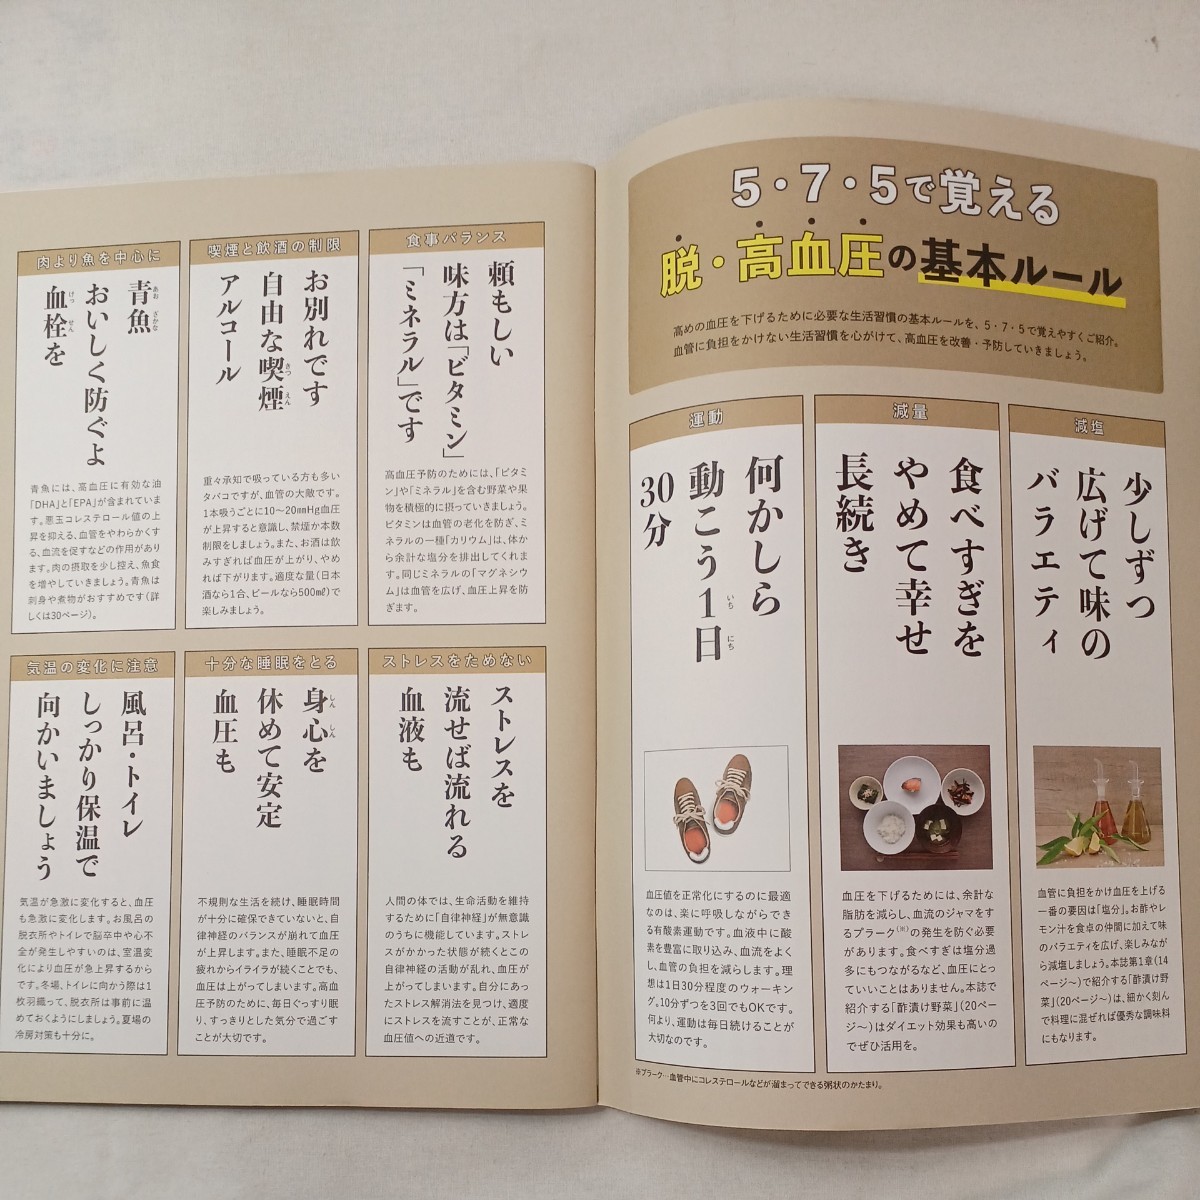 5・7・5で覚える
脱・高血圧の基本ルール
高めの血圧を下げるために必要な生活習慣の基本ルールを、5・7・5で覚えやすくご紹介。
血管に負担をかけない生活習慣を心がけて、高血圧を改善・予防していきましょう。
減塩
少しずつ
広げて味の
バラエティ
血管に負担をかけ血圧を上げる
一番の要因は「塩分」。お酢やレ
モン汁を食卓の仲間に加えて味
のバラエティを広げ、楽しみなが
ら減塩しましょう。本誌第1章(14
ページ〜)で紹介する「酢漬け野
菜」(20ページ〜)は、細かく刻ん
で料理に混ぜれば優秀な調味料
にもなります。
減量
食べすぎを
やめて幸せ
長続き
血圧を下げるためには、余計な
脂肪を減らし、血流のジャマをす
るプラーク(※)の発生を防ぐ必要
があります。食べすぎは塩分過
多にもつながるなど、血圧にとっ
ていいことはありません。本誌で
紹介する「酢漬け野菜」(20ペー
ジ〜)はダイエット効果も高いの
でぜひ活用を。
運動
何かしら
動こう1日
いち にち
30分
血圧値を正常化にするのに最適
なのは、楽に呼吸しながらでき
る有酸素運動です。血液中に酸
素を豊富に取り込み、血流をよく
し、血管の負担を減らします。理
想は1日30分程度のウォーキン
グ。10分ずつを3回でもOKです。
何より、運動は毎日続けることが
大切なのです。
※プラーク…血管中にコレステロールなどが溜まってできる粥状のかたまり。
食事バランス
頼もしい
味方は「ビタミン」
「ミネラル」です
高血圧予防のためには、「ビタミ
ン」や「ミネラル」を含む野菜や果
物を積極的に摂っていきましょう。
ビタミンは血管の老化を防ぎ、ミ
ネラルの一種「カリウム」は、体か
ら余計な塩分を排出してくれま
す。同じミネラルの「マグネシウ
ム」は血管を広げ、血圧上昇を防
ぎます。
喫煙と飲酒の制限
お別れです
自由な喫煙
きつ えん
アルコール
重々承知で吸っている方も多い
タバコですが、血管の大敵です。
1本吸うごとに10〜20mmHg血圧
が上昇すると意識し、禁煙か本数
制限をしましょう。また、お酒は飲
みすぎれば血圧が上がり、やめ
れば下がります。適度な量(日本
酒なら1合、ビールなら500ml)で
楽しみましょう。
肉より魚を中心に
青魚
あお ざかな
おいしく防ぐよ
血栓を
けっ せん
青魚には、高血圧に有効な油
「DHA」と「EPA」が含まれていま
す。悪玉コレステロール値の上
昇を抑える、血管をやわらかくす
る、血流を促すなどの作用があり
ます。肉の摂取を少し控え、魚食
を増やしていきましょう。青魚は
刺身や煮物がおすすめです(詳
しくは30ページ)。
ストレスをためない
ストレスを
流せば流れる
血液も
人間の体では、生命活動を維持
するために「自律神経」が無意識
のうちに機能しています。ストレ
スがかかった状態が続くとこの
自律神経の活動が乱れ、血圧が
上がってしまいます。自分にあっ
たストレス解消法を見つけ、適度
にストレスを流すことが、正常な
血圧値への近道です。
十分な睡眠をとる
身心を
しん しん
休めて安定
血圧も
不規則な生活を続け、睡眠時間
が十分に確保できていないと、自
律神経のバランスが崩れて血圧
が上昇します。また、睡眠不足の
疲れからイライラが続くことでも、
血圧は上がってしまいます。高血
圧予防のために、毎日ぐっすり眠
り、すっきりとした気分で過ごす
ことが大切です。
気温の変化に注意
風呂・トイレ
しっかり保温で
向かいましょう
気温が急激に変化すると、血圧
も急激に変化します。お風呂の
脱衣所やトイレで脳卒中や心不
全が発生しやすいのは、室温変
化により血圧が急上昇するから
です。冬場、トイレに向かう際は1
枚羽織って、脱衣所は事前に温
めておくようにしましょう。夏場の
冷房対策も十分に。